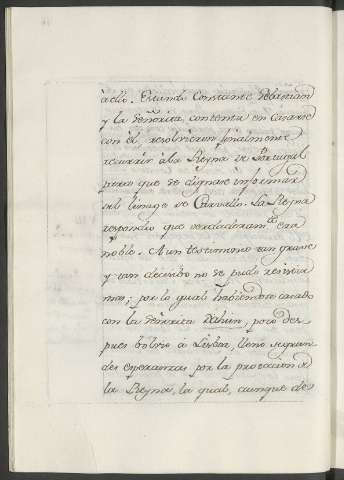 à ello. Estando Constante Sebastian
y la Señorita, contenta en casarse
con èl, resolvieron finalmente
recurrir à la Reyna de Portugal
para que se dignase informar
del linage de Carvallo. La Reyna
respondio que verdaderam.te era
noble. A un testimonio tan grave
y tan decisibo no se pudo resistir
mas; por lo qual, habiendose casado
con la Señorita Dahun, poco des
pues bolvio à Lisboa, lleno de gran
des esperanzas por la proteccion de
la Reyna, la qual, aunque de